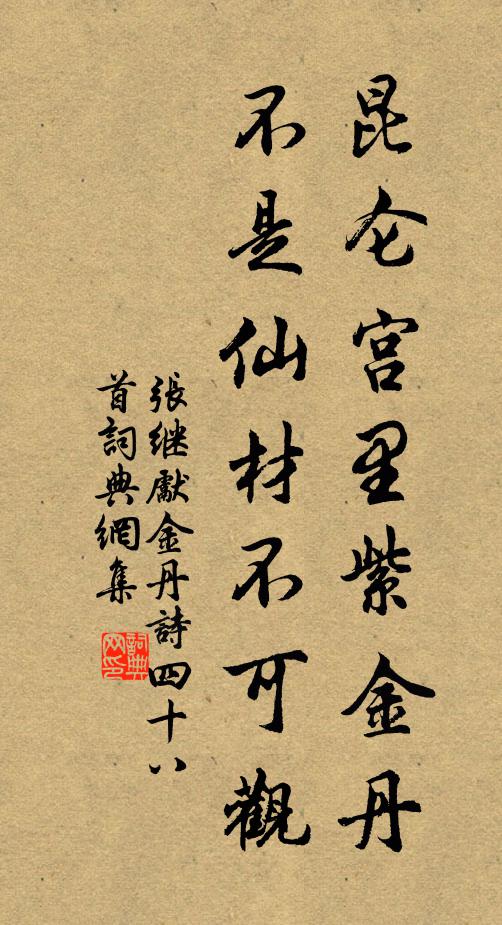 昆仑宫里紫金丹
不是仙材不可觀
張继獻金丹詩四十八
首詞典網集
詞典
网印